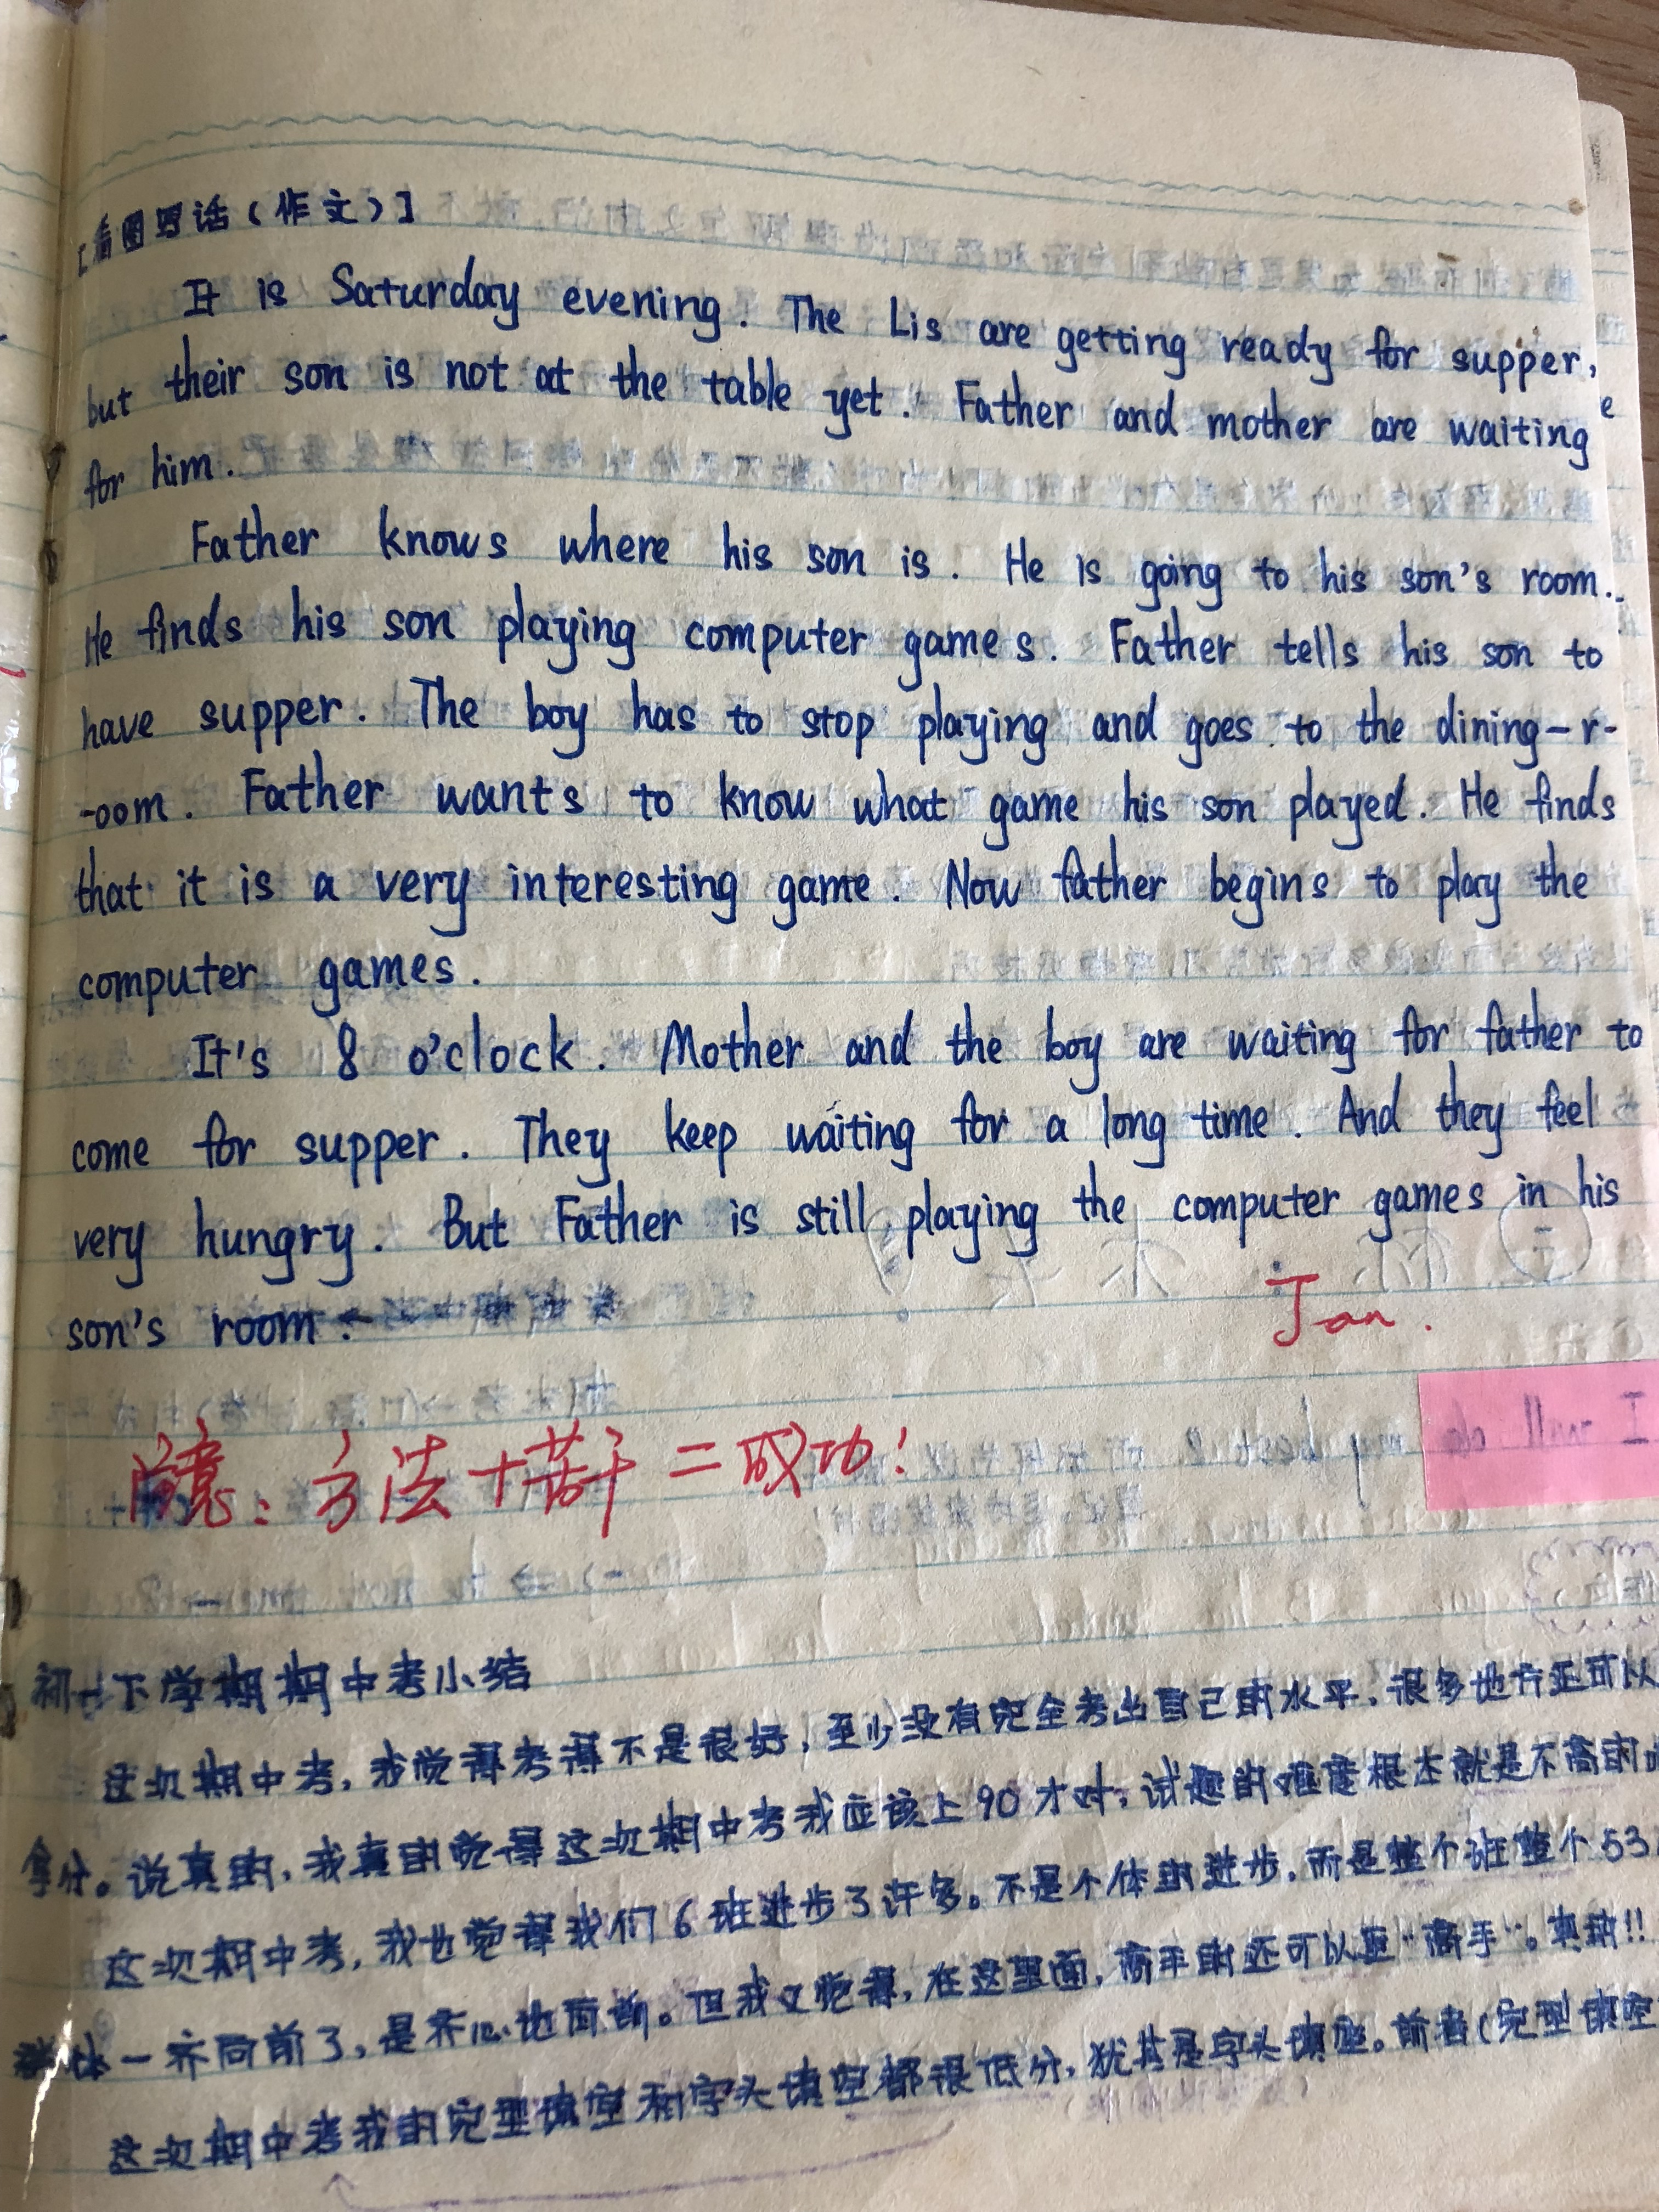 [看图写话(作文)]
It is Saturday evening. The Lis are getting ready for supper,
but their son is not at the table yet. Father and mother are waiting
for him.
Father knows where his son is. He is going to his son's room.
He finds his son playing computer games. Father tells his son to
have supper. The boy has to stop playing and goes to the dining-r-
-oom. Father wants to know what game his son played. He finds
that it is a very interesting game. Now father begins to play the
computer games.
It's 8 o'clock. Mother and the boy are waiting for father to
come for supper. They keep waiting for a long time. And they feel
very hungry. But Father is still playing the computer games in his
son's room.
Jan.
I will do my best
方法+苦干=成功!
初一下学期期中考小结
这次期中考,我觉得考得不是很好,至少没有完全考出自己的水平,很多地方还可以
拿分。说真的,我真的觉得这次期中考我应该上90才对,试题的难度根本就是不高的
这次期中考,我也觉得我们6班进步了许多。不是个体的进步,而是整个班整个53
一齐向前了,是齐心地向前。但我又觉得,在这里面,高手的还可以更"高手"。真的!!
这次期中考我的完型填空和字头填空都很低分,犹其是字头填空。前者(完型填空